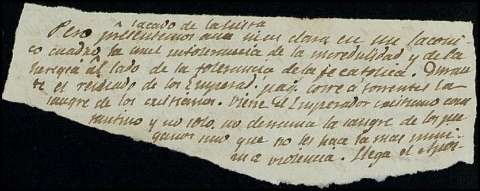 sacado de la hista
Pero presentemos aun mas clara en un laconi-
co cuadro, la cruel intolerancia de la incredulidad y de la
heregia al lado de la tolerancia de la fe catolica. Duran-
te el reinado de los Emperad. pag. corre a torrentes la
sangre de los cristianos. Viene el Emperador cristiano cons
tantino y no solo no derrama la sangre de los pa
ganos sino que no les hace la mas mini-
ma violencia. Llega el